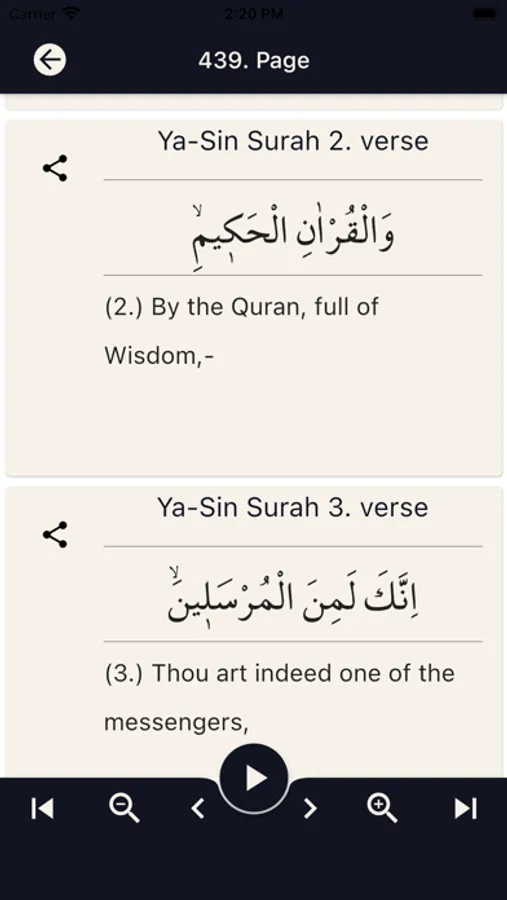 Carrier 2:20 PM
439. Page
Ya-Sin Surah 2. verse
وَالْقُرْاٰنِ الْحَكٖيمِۙ
(2.) By the Quran, full of
Wisdom,-
Ya-Sin Surah 3. verse
اِنَّكَ لَمِنَ الْمُرْسَلٖينَۙ
(3.) Thou art indeed one of the
messengers,